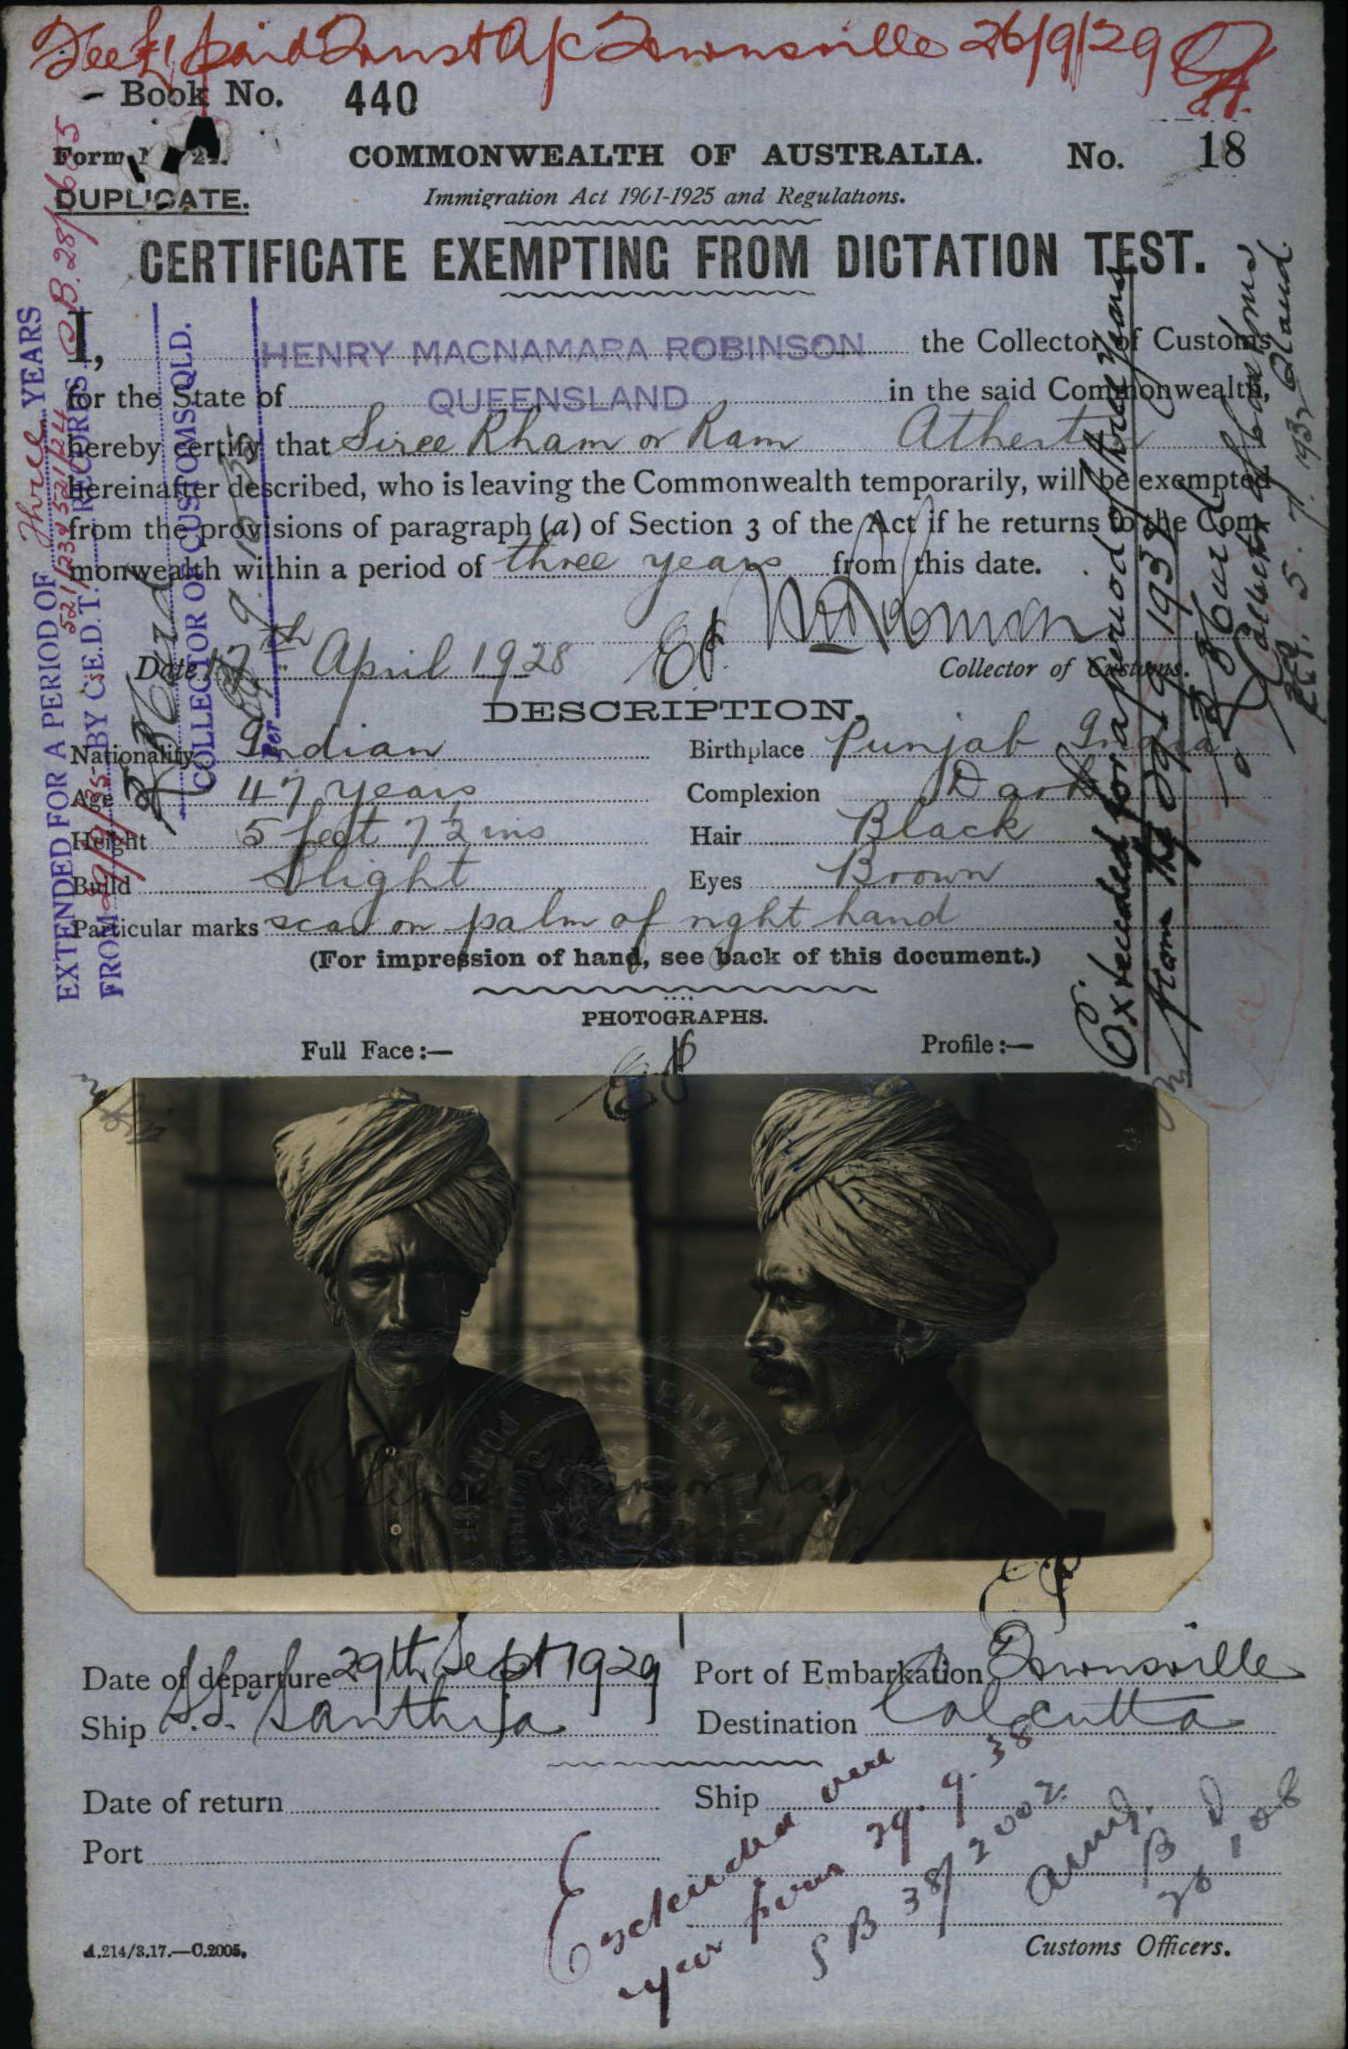 Fee £1 paid Trust A/c Townsville 26/9/29
Book No. 440
Form 21.
COMMONWEALTH OF AUSTRALIA.
No. 18
DUPLICATE.
Immigration Act 1901-1925 and Regulations.
CERTIFICATE EXEMPTING FROM DICTATION TEST.
I, HENRY MACNAMARA ROBINSON the Collector of Customs
for the State of QUEENSLAND in the said Commonwealth,
hereby certify that Siree Rham or Ram Atherton
hereinafter described, who is leaving the Commonwealth temporarily, will be exempted
from the provisions of paragraph (a) of Section 3 of the Act if he returns to the Com-
monwealth within a period of three years from this date.
Date 17th April 1928
Collector of Customs.
DESCRIPTION.
Nationality Indian
Birthplace Punjab India
Age 47 years
Complexion Dark
Height 5 feet 7½ ins
Hair Black
Build Slight
Eyes Brown
Particular marks scar on palm of right hand
(For impression of hand, see back of this document.)
PHOTOGRAPHS.
Full Face:—
Profile:—
Siree Rham or Ram
Date of departure 29th Sept 1929
Port of Embarkation Townsville
Ship S.S. Santhia
Destination Calcutta
Date of return
Ship
Port
Extended one
year from 29.9.38
38/2002
A.214/3.17.—C.2005.
Customs Officers.
EXTENDED FOR A PERIOD OF Three YEARS
FROM 29/9/35 BY C.E.D.T. RECORDS
COLLECTOR OF CUSTOMS QLD.
Per
Extended for a period of three years
from the 29/9/1932
Collector of Customs
5.7.1932